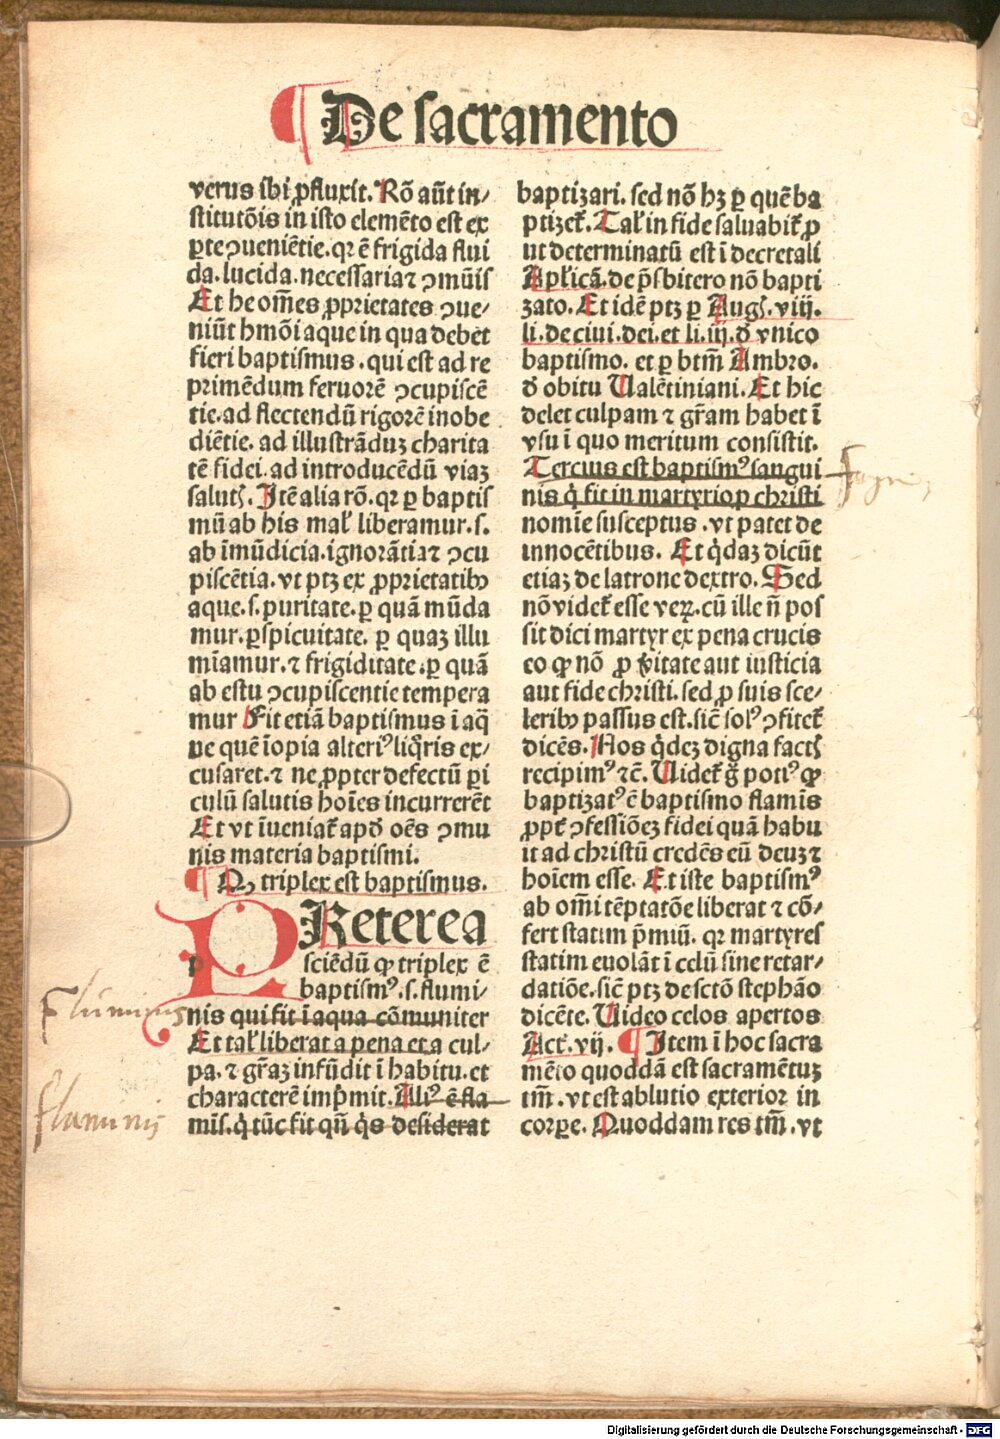 ¶ De sacramento
verus ibi ꝓfluxit. Rõ aũt in⸗
stitutõis in isto elemẽto est ex
ꝑte ꝯueniẽtie. qꝛ ẽ frigida flui
da. lucida. necessaria ⁊ ꝯmũis
Et he om̃es ꝓprietates ꝯue⸗
niũt hmõi aque in qua debẽt
fieri baptismus. qui est ad re
primẽdum feruorẽ ꝯcupiscẽ
tie. ad flectendũ rigorẽ inobe
diẽtie. ad illustrãduꝫ charita
tẽ fidei. ad introducẽdũ viaꝫ
salutꝭ. Itẽ alia rõ. qꝛ ꝑ baptis
mũ ab his mal̃ liberamur. s.
ab ĩmũdicia. ignorãtia ⁊ ꝯcu
piscẽtia. vt ptꝫ ex ꝓprietatibꝰ
aque. s. puritate. ꝑ quã mũda
mur. ꝑspicuitate. ꝑ quaꝫ illu
mĩamur. ⁊ frigiditate. ꝑ quã
ab estu ꝯcupiscentie tempera
mur Fit etiã baptismus ĩ aq̃
ne quẽ ĩopia alteriꝰ liq̃ris ex⸗
cusaret. ⁊ ne ꝓpter defectũ ꝑi
culũ salutis hoĩes incurrerẽt
Et vt ĩueniat̃ apd̃ oẽs ꝯmu
nis materia baptismi.
¶ Qꝫ triplex est baptismus.
PReterea
sciẽdũ ꝙ triplex ẽ
baptismꝰ. s. flumi⸗
Fluminis
nis qui fit ĩ aqua cõmuniter
Et tal̃ liberat a pena et a cul⸗
pa. ⁊ gr̃aꝫ infũdit ĩ habitu. et
characterẽ imp̃mit. Aliꝰ ẽ fla
flaminis
mĩs. q̃ tũc fit qñ q̃s desiderat
baptizari. sed nõ hꝫ ꝑ quẽ ba
ptizet̃. Tal̃ in fide saluabit̃ ꝓ
ut determinatũ est ĩ decretali
Apl̃icã. de p̃sbitero nõ bapti
zato. Et idẽ ptꝫ ꝑ Augꝭ. viij.
li. de ciui. dei. et li. iij. d̃ vnico
baptismo. et ꝑ btm̃ Ambro.
d̃ obitu Ualẽtiniani. Et hic
delet culpam ⁊ gr̃am habet ĩ
vsu ĩ quo meritum consistit.
Tercius est baptismꝰ sangui
nis q̃ fit in martyrio ꝓ christi
nomĩe susceptus. vt patet de
innocẽtibus. Et q̃daꝫ dicũt
etiaꝫ de latrone dextro. Sed
nõ videt̃ esse veꝝ. cũ ille ñ pos
sit dici martyr ex pena crucis
eo ꝙ nõ ꝓ ṽitate aut iusticia
aut fide christi. sed ꝓ suis sce⸗
leribꝰ passus est. sic̃ solꝰ ꝯfitet̃
dicẽs. Nos q̃deꝫ digna factꝭ
recipimꝰ ⁊c̃. Uidet̃ g̃ potiꝰ ꝙ
baptizatꝰ ẽ baptismo flamĩs
ꝓpt̃ ꝯfessiõeꝫ fidei quã habu
it ad christũ credẽs eũ deuꝫ ⁊
hoĩem esse. Et iste baptismꝰ
ab om̃i tẽptatõe liberat ⁊ cõ⸗
fert statim p̃miũ. qꝛ martyres
statim euolãt ĩ celũ sine retar⸗
datiõe. sic̃ ptꝫ de sctõ stephão
dicẽte. Uideo celos apertos
Act̃. vij. ¶ Item ĩ hoc sacra
mẽto quoddã est sacramẽtuꝫ
tm̃. vt est ablutio exterior in
corꝑe. Quoddam res tm̃. vt